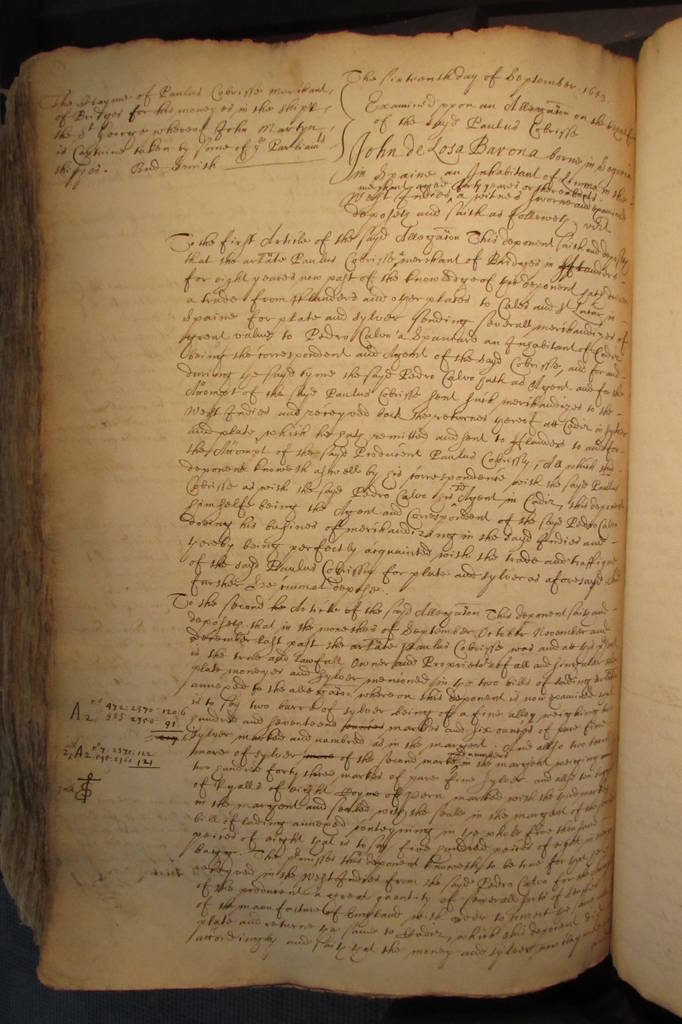 The clayme of Paulus Cobrisse merchant
of Bridges for his moneyes in the shipp
the St George whereof John Martyn
is Captaine taken by some of ye Parliamts
shipps. Bud. Smith
The sixteenth day of September 1653.
Examined upon an Allegaton on the behalfe
of the sayd Paulus Cobrisse
John de Losa Barona borne in Segovia
in Spaine an Inhabitant of Limma in the
merchant aged thirty yeares or thereabouts
West Indies a witnes sworne and examined
deposeth and saith as followeth vizt
To the first Article of the sayd Allegaton This deponent saith and deposeth
that the arlate Paulus Cobrisse merchant of Bridges in Flanders
for eight yeares now past of the knowledge of this deponent hath driven
a trade from Flanders and other places to Cales and St Lucar in
Spaine for plate and sylver sending severall merchandizes of
great value to Pedro Calvo a Spaniard an Inhabitant of Cadiz
being the correspondent and Agent of the sayd Cobrisse, and for and
during the sayd tyme the sayd Pedro Calvo hath as Agent and for the
Accompt of the sayd Paulus Cobrisse sent such merchandizes to the
West Indies and receyved back the returnes thereof att Cadiz in sylver
and plate, which he hath remitted and sent to Flanders to and for
the Accompt of the sayd Producent Paulus Cobrisse, All which this
deponent knoweth aswell by his correspondence with the sayd Paulus
Cobrisse as with the sayd Pedro Calvo his Agent in Cadiz, this deponent
himselfe being the Agent and Correspondent of the sayd Pedro Calvo
doeing his busines of merchandizing in the sayd Indies and
thereby being perfectly acquainted with the trade and traffique
of the sayd Paulus Cobrisse for plate and sylver as aforesayd And
further he cannot depose.
To the second Article of the sayd Allegaton This deponent saith and
deposeth that in the moneths of September, October November and
December last past the arlate Paulus Cobrisse was and att this present
is the true and lawfull Owner and Proprietor of all and singular the
plate moneyes and sylver mentioned in the two bills of lading
annexed to the allegaton whereon this deponent is now examined that
is to say two barrs of sylver being of a fine alloy weighing two
hundred and seventeene markes and six ounces of pure fine
sylver marked and numbred as in the margent. And alsoe two barrs
more of sylver of the second marke in the margent weighing
two hundred forty three markes of pure fine sylver and alsoe
of Ryalls of eight Coyne of Peru marked with the third marke
in the margent and sealed with the seale in the margent of the
bill of lading annexed conteyning in the whole five thousand
peices of eight that is to say five hundred peices of eight in every
bagg. The premisses this deponent knoweth to be true for that he
receyved in the West Indies from the sayd Pedro Calvo for the
of the producent a great quantity of severall sorts of
of the manufacture of with order to the same
plate and returne the same to Cadiz, which this deponent did
accordingly and saith that the money and sylver now
A2 no 972 2370 120 6
985 2300 91
A2 no 2370 122
2300 121